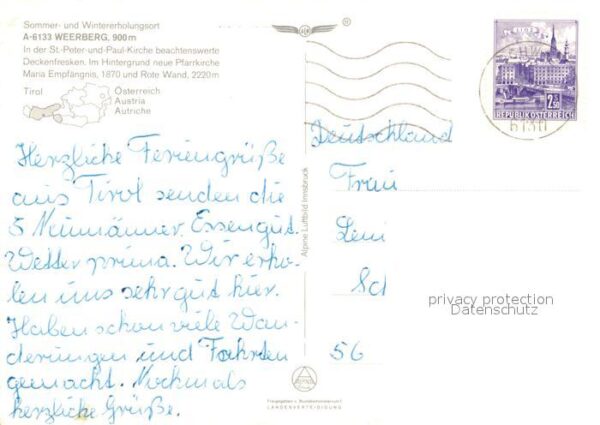 Sommer- und Wintererholungsort
A-6133 WEERBERG, 900 m
In der St.-Peter-und-Paul-Kirche beachtenswerte
Deckenfresken. Im Hintergrund neue Pfarrkirche
Maria Empfängnis, 1870 und Rote Wand, 2220m
Tirol
Österreich
Austria
Autriche
Herzliche Feriengrüße
aus Tirol senden die
5 Neumänner. Essen gut.
Wetter prima. Wir erho-
len uns sehr gut hier.
Haben schon viele Wan-
derungen und Fahrten
gemacht. Nochmals
herzliche Grüße.
Alpine Luftbild Innsbruck
Freigegeben v. Bundesministerium f.
LANDESVERTEIDIGUNG
2.50
REPUBLIK ÖSTERREICH
6130
Deutschland
Frau
Leni
Sch
56
privacy protection
Datenschutz